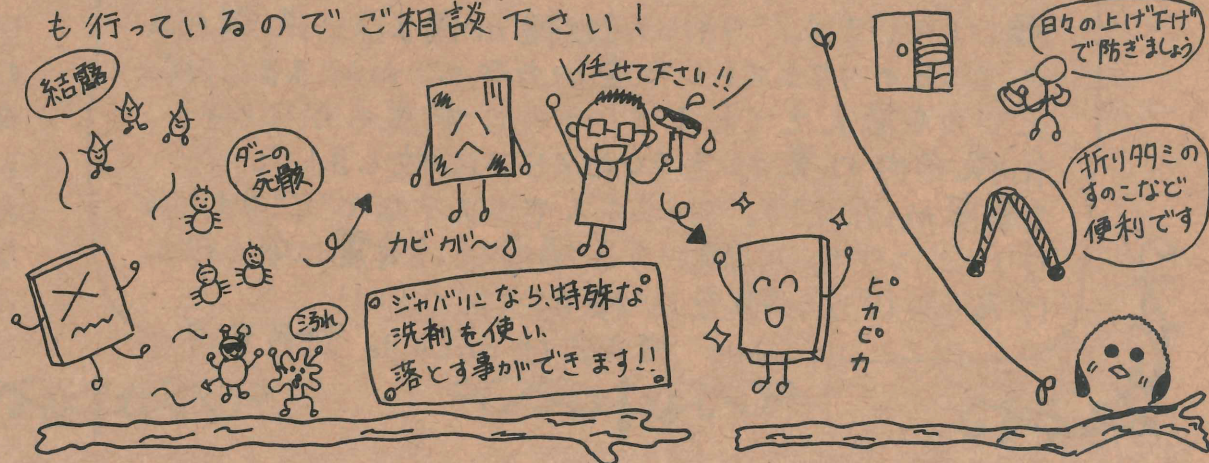 も行っているのでご相談下さい!
結露
ダニの
死骸
汚れ
カビが〜
\任せて下さい!!/
ジャバリンなら、特殊な
洗剤を使い、
落とす事ができます!!
ピカピカ
日々の上げ下げ
で防ぎましょう
折りタタミの
すのこなど
便利です